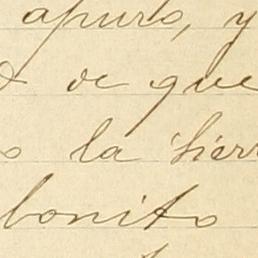 apuro, y
de que
la tierr
bonito